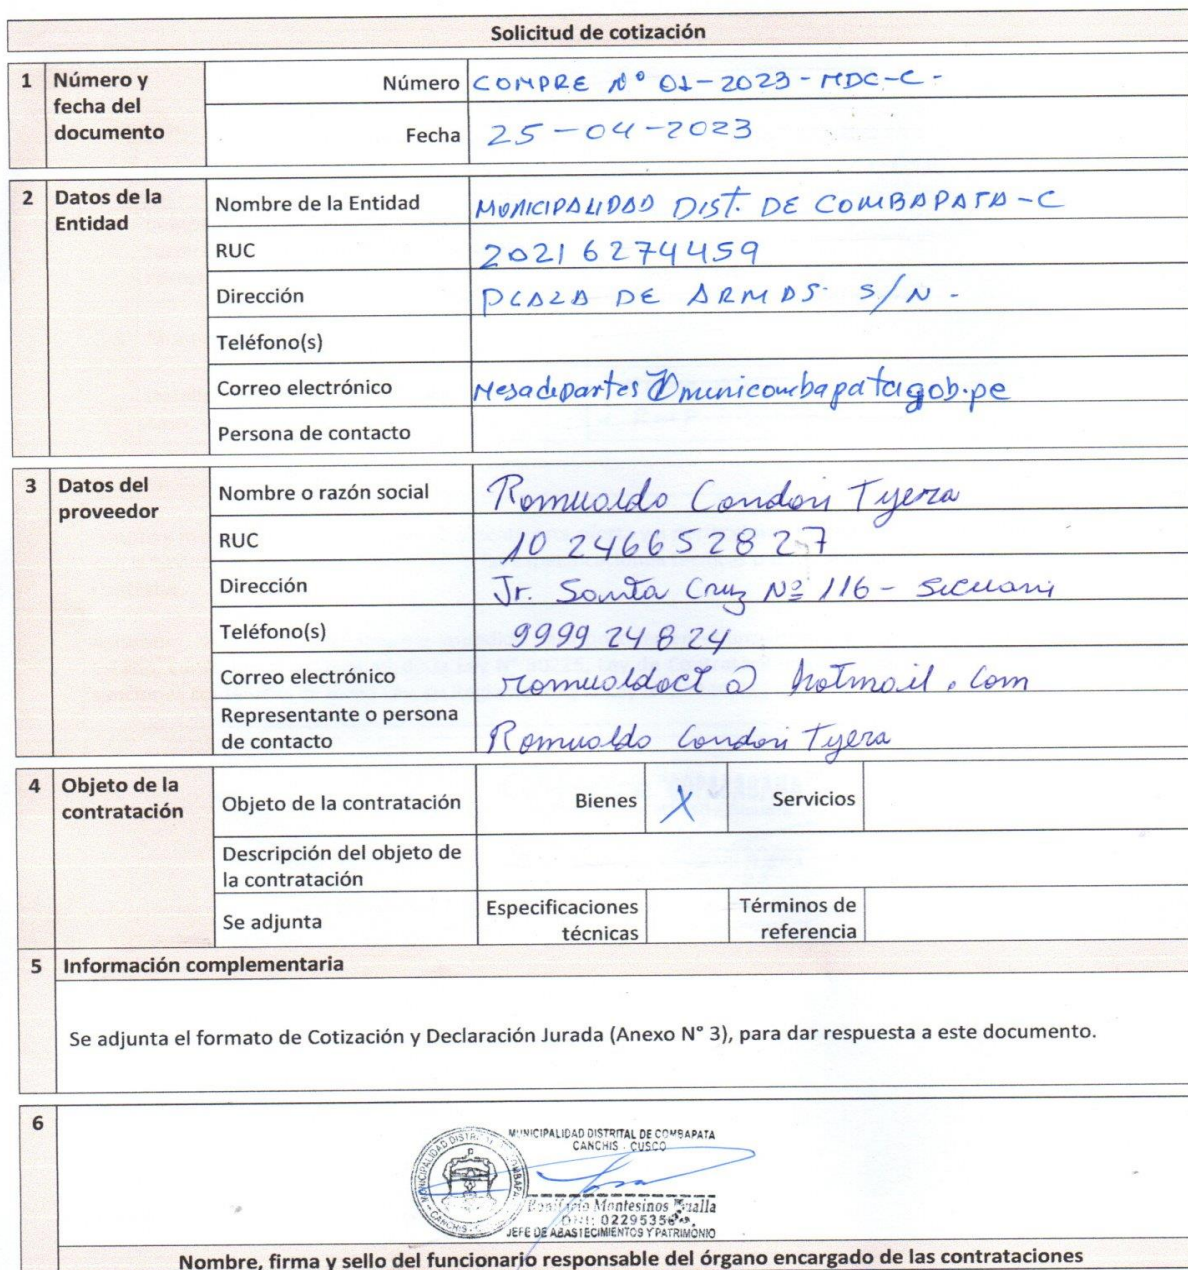 Solicitud de cotización
1 Número y fecha del documento
Número COMPRE N° 01-2023-MDC-C-
Fecha 25-04-2023
2 Datos de la Entidad
Nombre de la Entidad MUNICIPALIDAD DIST. DE COMBAPATA-C
RUC 20216274459
Dirección PLAZA DE ARMAS S/N -
Teléfono(s)
Correo electrónico Mesadepartes@municombapata.gob.pe
Persona de contacto
3 Datos del proveedor
Nombre o razón social Romualdo Condori Tyera
RUC 10 2466 52827
Dirección Jr. Santa Cruz Nº 116 - Sicuani
Teléfono(s) 9999 24824
Correo electrónico romualdoct@hotmail.com
Representante o persona de contacto Romualdo Condori Tyera
4 Objeto de la contratación
Objeto de la contratación Bienes X Servicios
Descripción del objeto de la contratación
Se adjunta Especificaciones técnicas Términos de referencia
5 Información complementaria
Se adjunta el formato de Cotización y Declaración Jurada (Anexo N° 3), para dar respuesta a este documento.
6
MUNICIPALIDAD DISTRITAL DE COMBAPATA
CANCHIS - CUSCO
Montesinos
DNI:
JEFE DE ABASTECIMIENTOS Y PATRIMONIO
Nombre, firma y sello del funcionario responsable del órgano encargado de las contrataciones